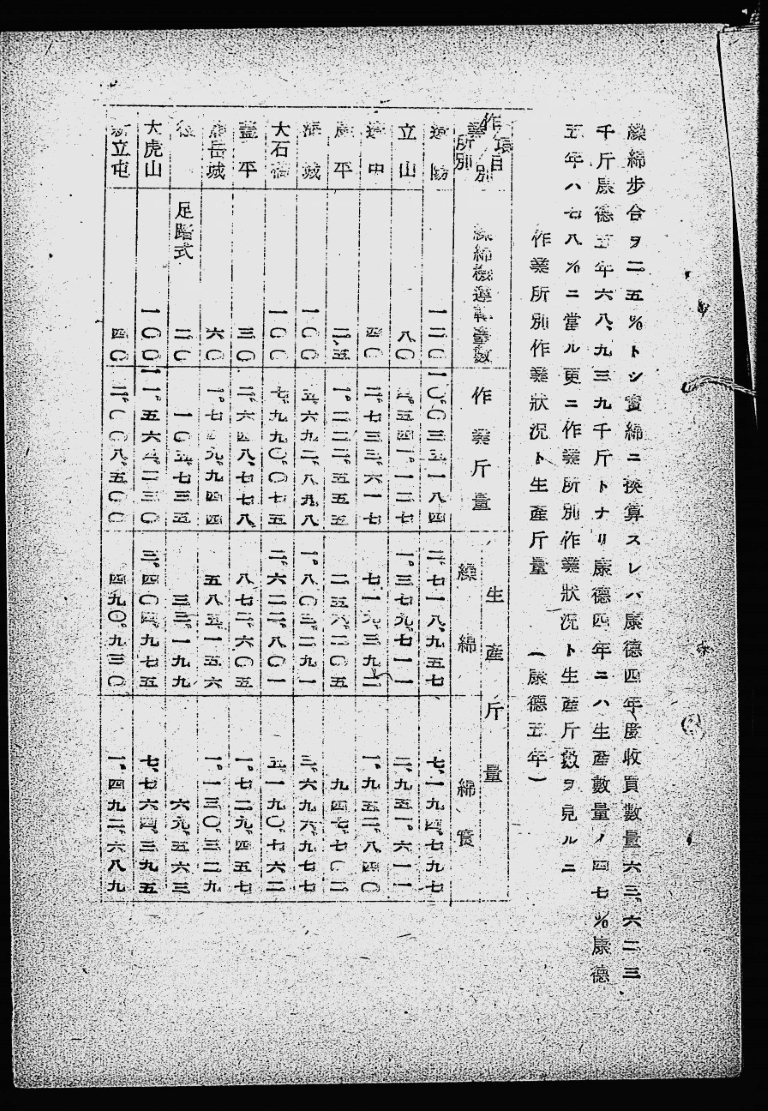 繰綿步合ヲ二五%トシ實綿ニ換算スレバ康德四年度收買數量六三、六二三
千斤康德五年六八、九三九千斤トナリ康德四年ニハ生產數量ノ四七%康德
五年ハ七八%ニ當ル更ニ作業所別作業狀況ト生產斤數ヲ見ルニ
作業所別作業狀況ト生產斤量 (康德五年)
作業所別 項目別 繰綿機運轉臺數 作業斤量 生產斤量 繰綿 綿實
遼陽 一二〇 一〇、〇三五、一八四 二、七一八、九五七 七、一九四、七九七
立山 八〇 一、三七九、七一一 二、九五一、六一一
遼中 四〇 二、七三三、六一七 七一九、三九二 一、九五二、八四〇
平 二五 一、二二二、五五五 二五六、二〇五 九四七、七〇二
海城 一〇〇 五、六九二、八九八 一、八〇三、二九一 三、六九六、九七七
大石橋 一〇〇 七、九九〇、〇七五 二、六二二、八〇一 五、一九〇、七六二
蓋平 三〇 二、六四八、七七八 八七二、六〇五 一、七二九、四五七
熊岳城 六〇 一、七四九、九四四 五八五、一五六 一、一三〇、三二九
復 足踏式 二〇 一〇五、七三五 三三、一九九 六九、五六三
大虎山 一〇〇 一一、五六四、二三〇 三、四〇四、九七五 七、七六四、三九五
新立屯 四〇 二、〇〇八、五〇〇 四九〇、九三〇 一、四九二、六八九